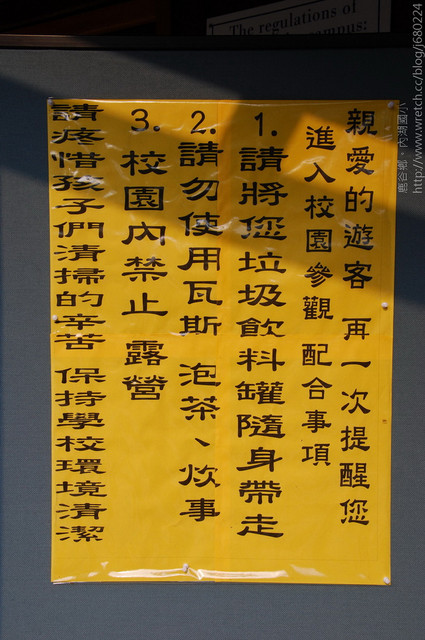 The regulations of
campus:
親愛的遊客 再一次提醒您
進入校園參觀 配合事項
1.請將您垃圾飲料罐隨身帶走
2.請勿使用瓦斯 泡茶、炊事
3.校園內禁止 露營
請疼惜孩子們清掃的辛苦 保持學校環境清潔
鹿谷鄉。內湖國小
http://www.wretch.cc/blog/j680224